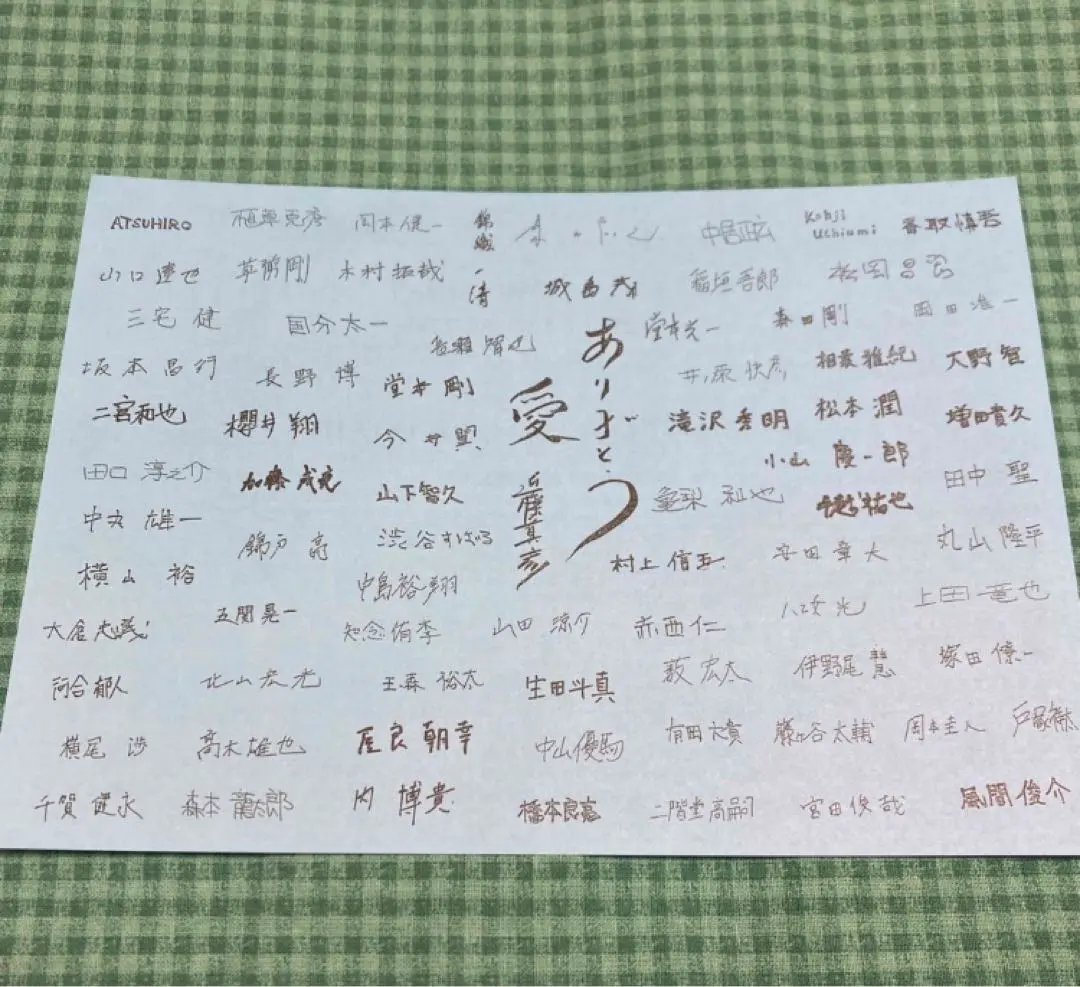 ATSUHIRO 植草克彦 岡本健一 錦織一清 中居正広 Kohji Uchiumi 香取慎吾
山口達也 草彅剛 木村拓哉 城島茂 稲垣吾郎 松岡昌宏
三宅健 国分太一 長瀬智也 堂本光一 森田剛 岡田准一
坂本昌行 長野博 堂本剛 井ノ原快彦 相葉雅紀 大野智
二宮和也 櫻井翔 今井翼 滝沢秀明 松本潤 増田貴久
ありがとう
愛
近藤真彦
小山慶一郎
田口淳之介 加藤成亮 山下智久 亀梨和也 手越祐也 田中聖
中丸雄一 錦戸亮 渋谷すばる 村上信五 安田章大 丸山隆平
横山裕 五関晃一 中島裕翔 八乙女光 上田竜也
大倉忠義 知念侑李 山田涼介 赤西仁
河合郁人 北山宏光 玉森裕太 生田斗真 薮宏太 伊野尾慧 塚田僚一
横尾渉 高木雄也 屋良朝幸 中山優馬 有岡大貴 藤ヶ谷太輔 岡本圭人 戸塚祥太
千賀健永 森本龍太郎 内博貴 橋本良亮 二階堂高嗣 宮田俊哉 風間俊介